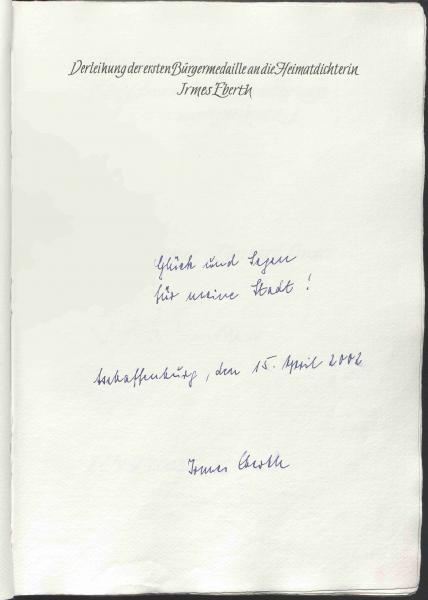 Verleihung der ersten Bürgermedaille an die Heimatdichterin
Irmes Eberth
Glück und Segen
für meine Stadt !
Aschaffenburg, den 15. April 2002
Irmes Eberth